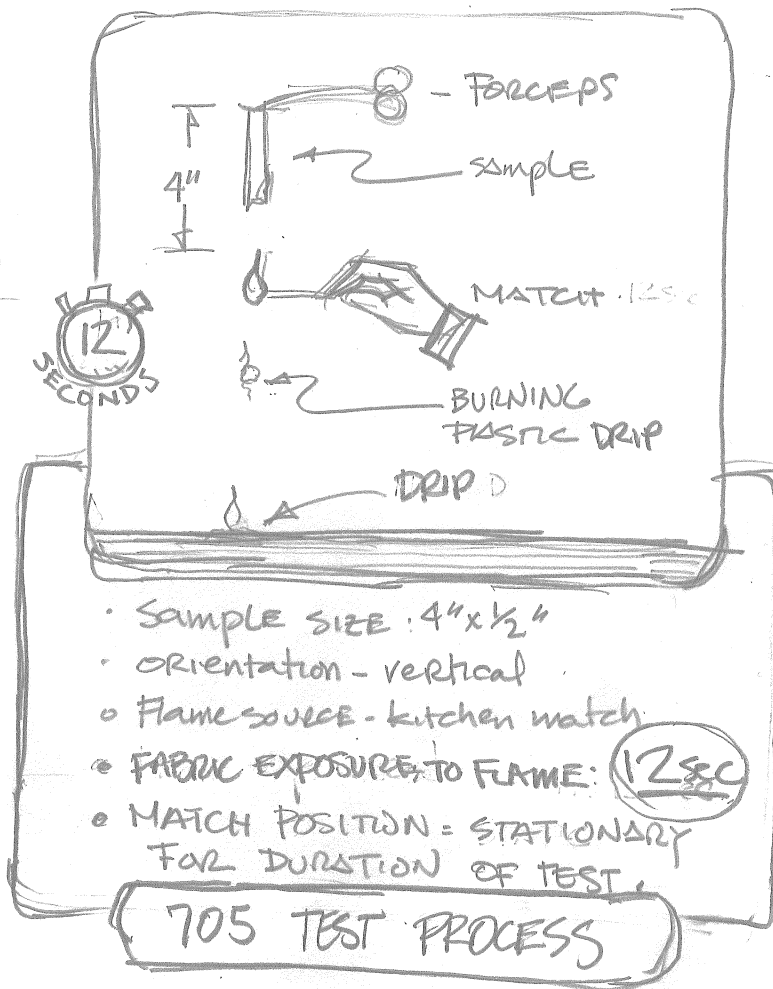 - FORCEPS
4"
SAMPLE
MATCH 12sec
12
SECONDS
BURNING
PLASTIC DRIP
DRIP D
• SAMPLE SIZE : 4" x 1/2"
• orientation - vertical
o Flame source - kitchen match
• FABRIC EXPOSURE TO FLAME: 12 sec
• MATCH POSITION = STATIONARY
FOR DURATION OF TEST.
705 TEST PROCESS